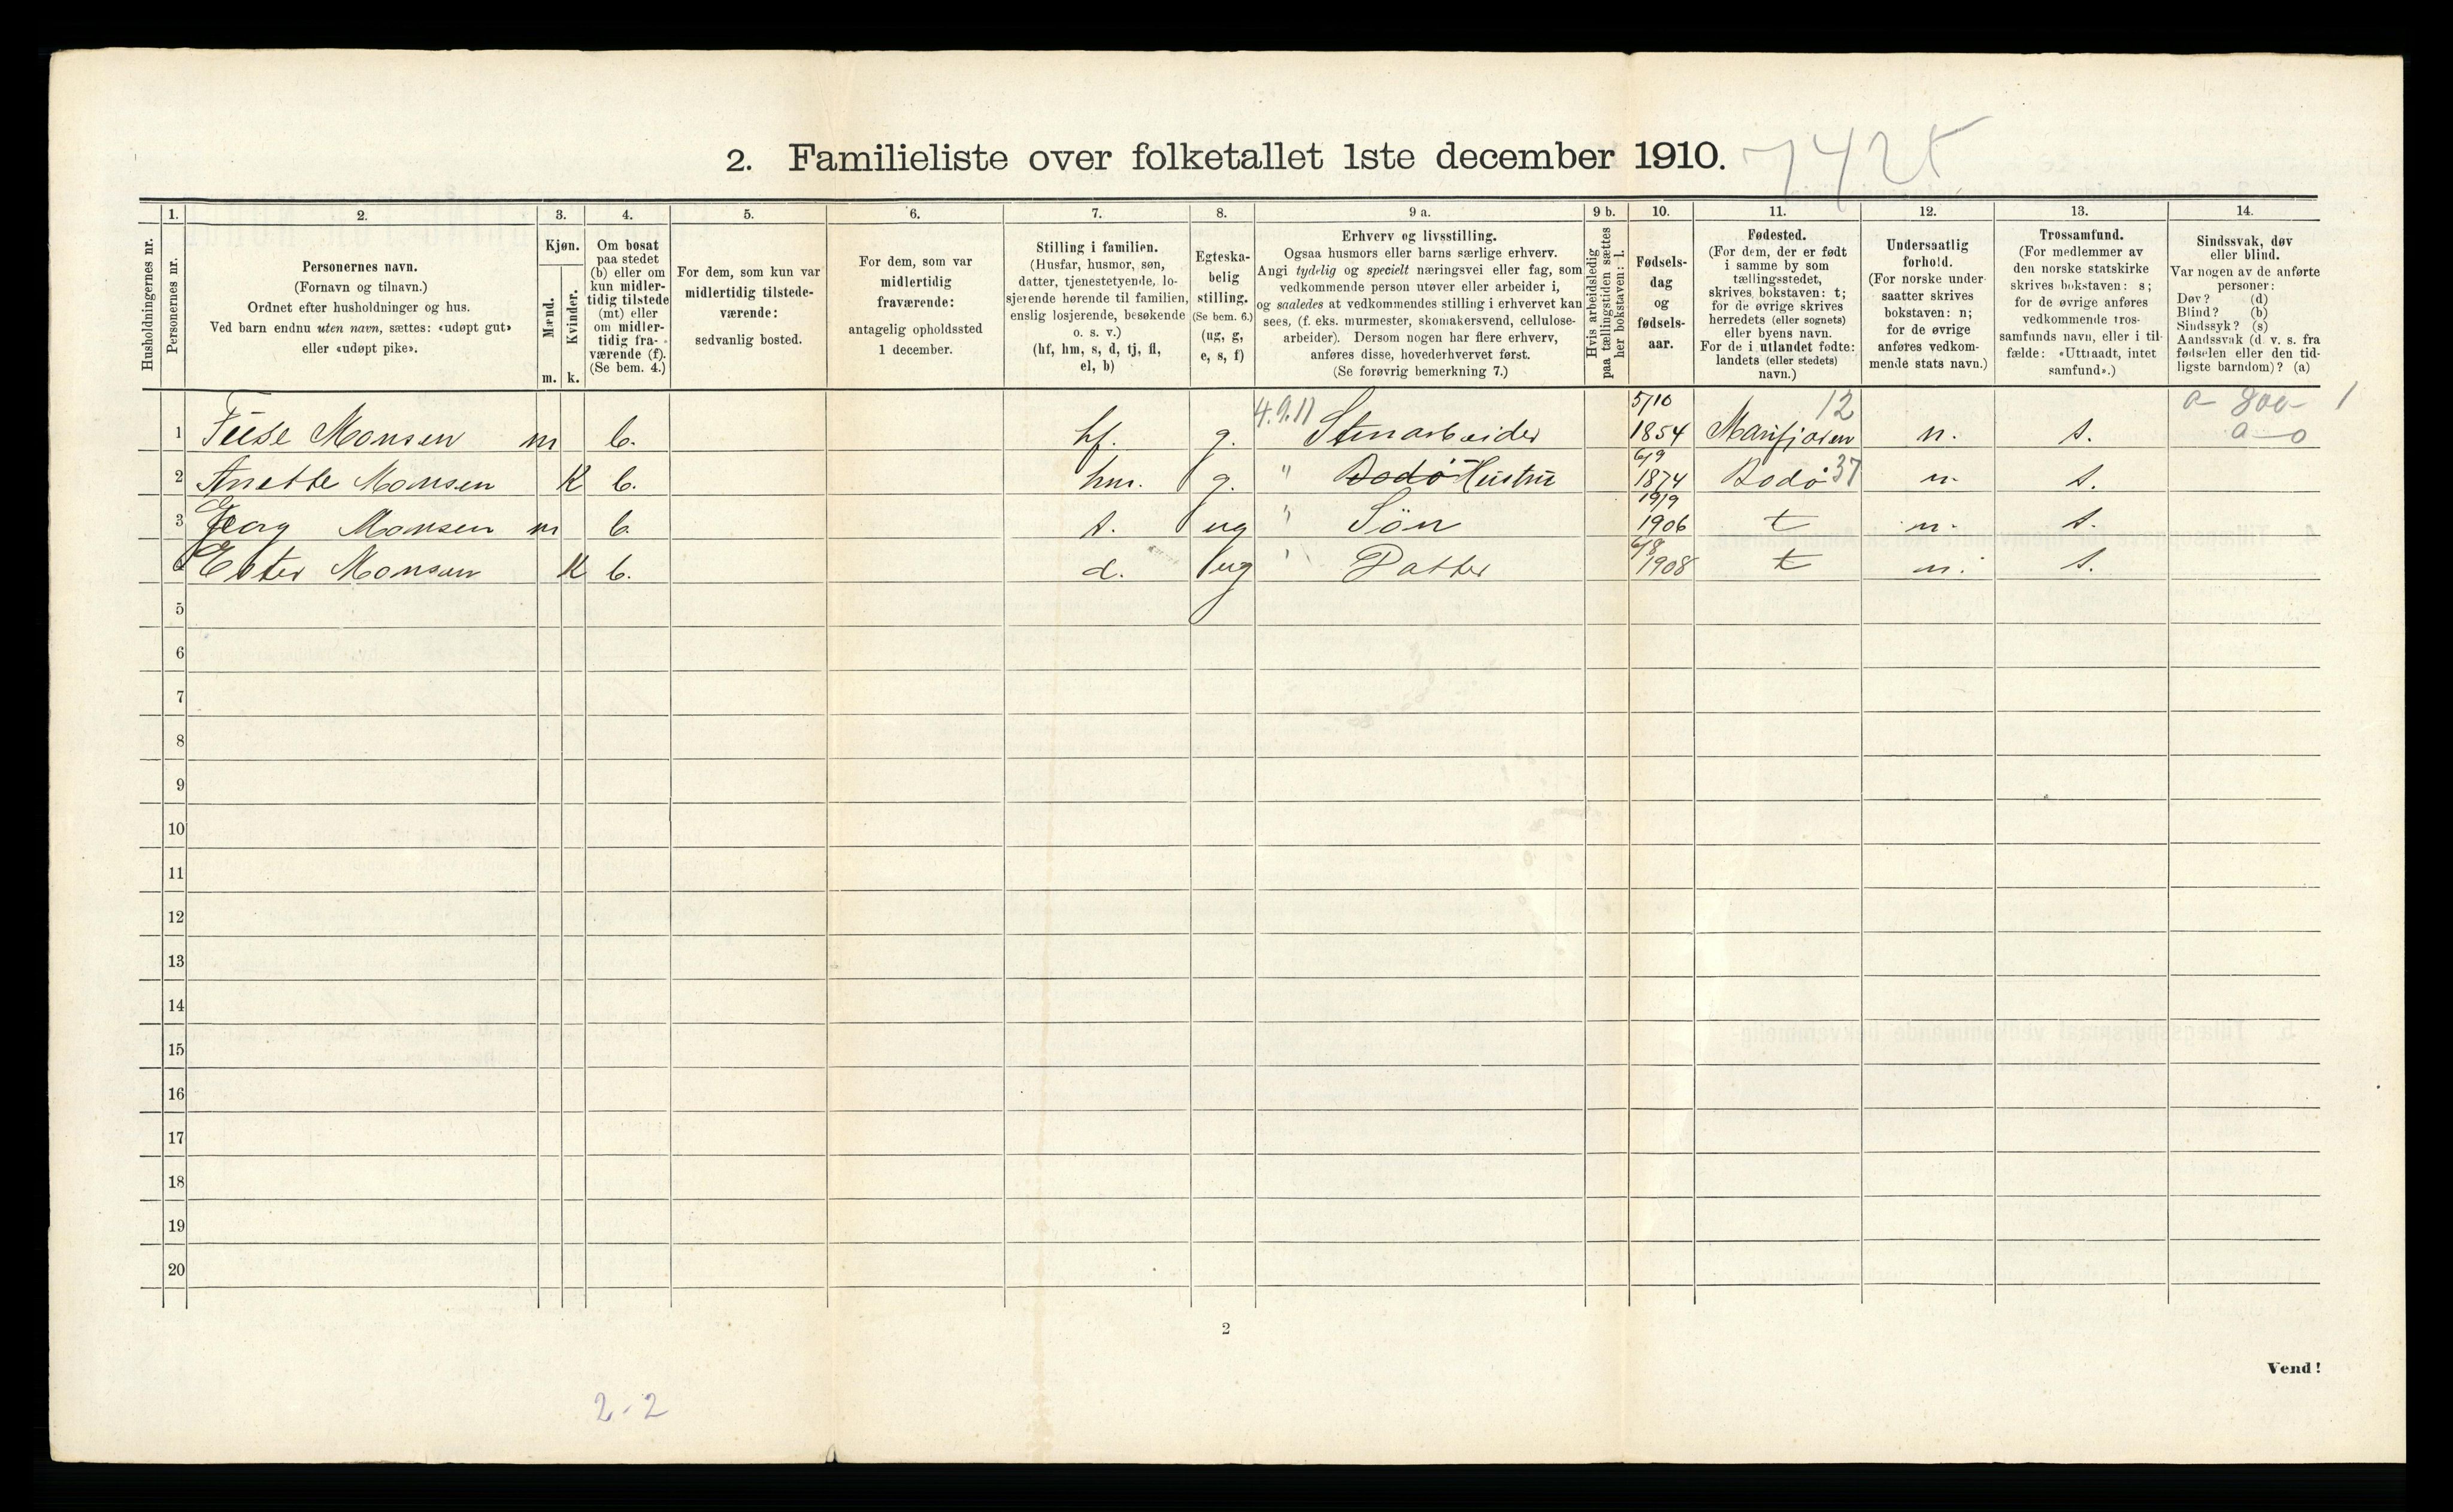 2. Familieliste over folketallet 1ste december 1910.
7425
1. 2. 3. 4. 5. 6. 7. 8. 9 a. 9 b. 10. 11. 12. 13. 14.
Husholdningernes nr.
Personernes nr.
Personernes navn.
(Fornavn og tilnavn.)
Ordnet efter husholdninger og hus.
Ved barn endnu uten navn, sættes: «udøpt gut»
eller «udøpt pike».
Kjøn.
Mænd.
m.
Kvinder.
k.
Om bosat
paa stedet
(b) eller om
kun midler-
tidig tilstede
(mt) eller
om midler-
tidig fra-
værende (f).
(Se bem. 4.)
For dem, som kun var
midlertidig tilstede-
værende:
sedvanlig bosted.
For dem, som var
midlertidig
fraværende:
antagelig opholdssted
1 december.
Stilling i familien.
(Husfar, husmor, søn,
datter, tjenestetyende, lo-
sjerende hørende til familien,
enslig losjerende, besøkende
o. s. v.)
(hf, hm, s, d, tj, fl,
el, b)
Egteska-
belig
stilling.
(Se bem. 6.)
(ug, g,
e, s, f)
Erhverv og livsstilling.
Ogsaa husmors eller barns særlige erhverv.
Angi tydelig og specielt næringsvei eller fag, som
vedkommende person utøver eller arbeider i,
og saaledes at vedkommendes stilling i erhvervet kan
sees, (f. eks. murmester, skomakersvend, cellulose-
arbeider). Dersom nogen har flere erhverv,
anføres disse, hovederhvervet først.
(Se forøvrig bemerkning 7.)
Hvis arbeidsledig
paa tællingstiden sættes
her bokstaven: l.
Fødsels-
dag
og
fødsels-
aar.
Fødested.
(For dem, der er født
i samme by som
tællingsstedet,
skrives bokstaven: t;
for de øvrige skrives
herredets (eller sognets)
eller byens navn.
For de i utlandet fødte:
landets (eller stedets)
navn.)
Undersaatlig
forhold.
(For norske under-
saatter skrives
bokstaven: n;
for de øvrige
anføres vedkom-
mende stats navn.)
Trossamfund.
(For medlemmer av
den norske statskirke
skrives bokstaven: s;
for de øvrige anføres
vedkommende tros-
samfunds navn, eller i til-
fælde: «Uttraadt, intet
samfund».)
Sindssvak, døv
eller blind.
Var nogen av de anførte
personer:
Døv? (d)
Blind? (b)
Sindssyk? (s)
Aandssvak (d. v. s. fra
fødselen eller den tid-
ligste barndom)? (a)
4.9.11 5/10 12 a- 800- 1
1 Monsen m b. hf. g. Stenarbeider 1854 Marifjøren n. s. a-o
6/9
2 Anette Monsen K b. hm. g. " Bodø Hustru 1874 Bodø 37 n. s.
19/9
3 Georg Monsen m b. s. ug " Søn 1906 t n. s.
6/8
4 Ester Monsen K b. d. ug " Datter 1908 t n. s.
5
6
7
8
9
10
11
12
13
14
15
16
17
18
19
20
2
Vend!
2-2